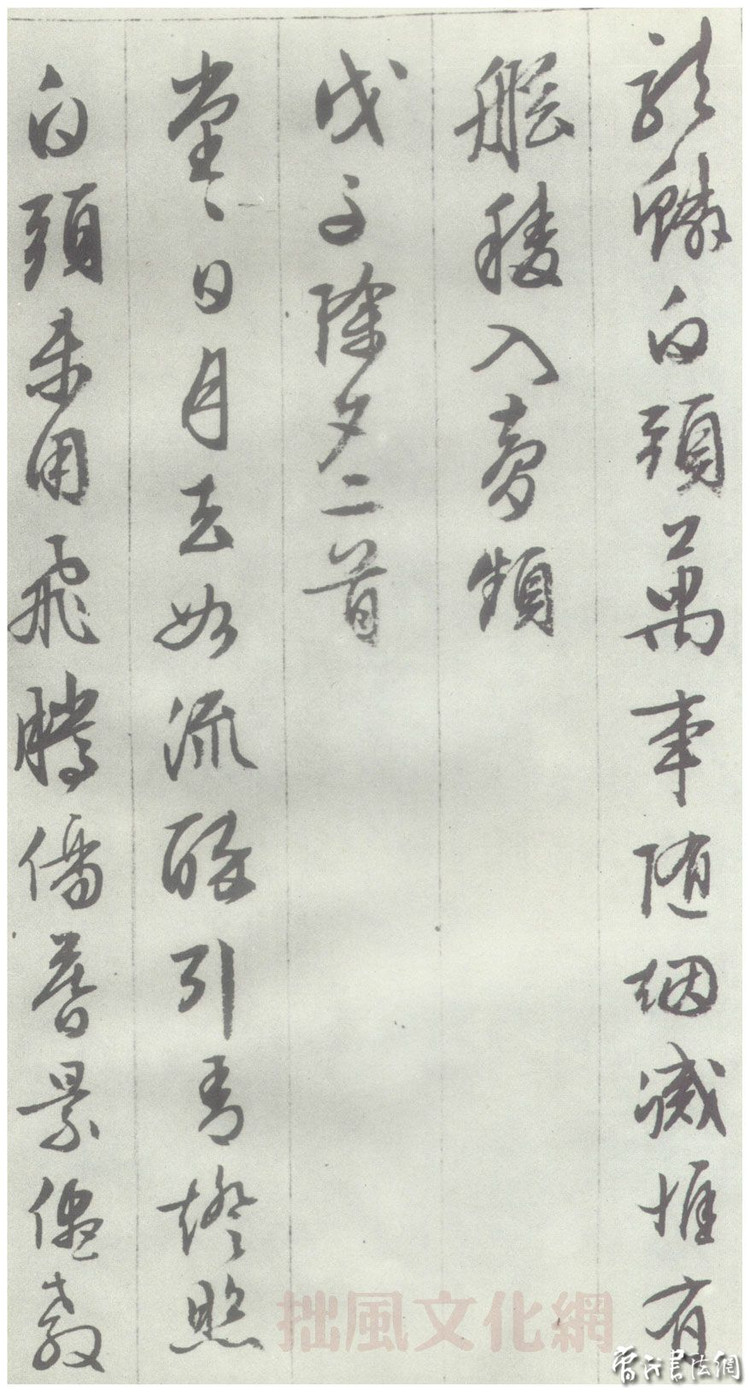 龍鱗白頭萬事隨烟滅惟有
觚稜入夢頻
戊子除夕二首
堂〻日月去如流醉引青燈照
白頭未用飛騰傷暮景儘教
拙風文化網